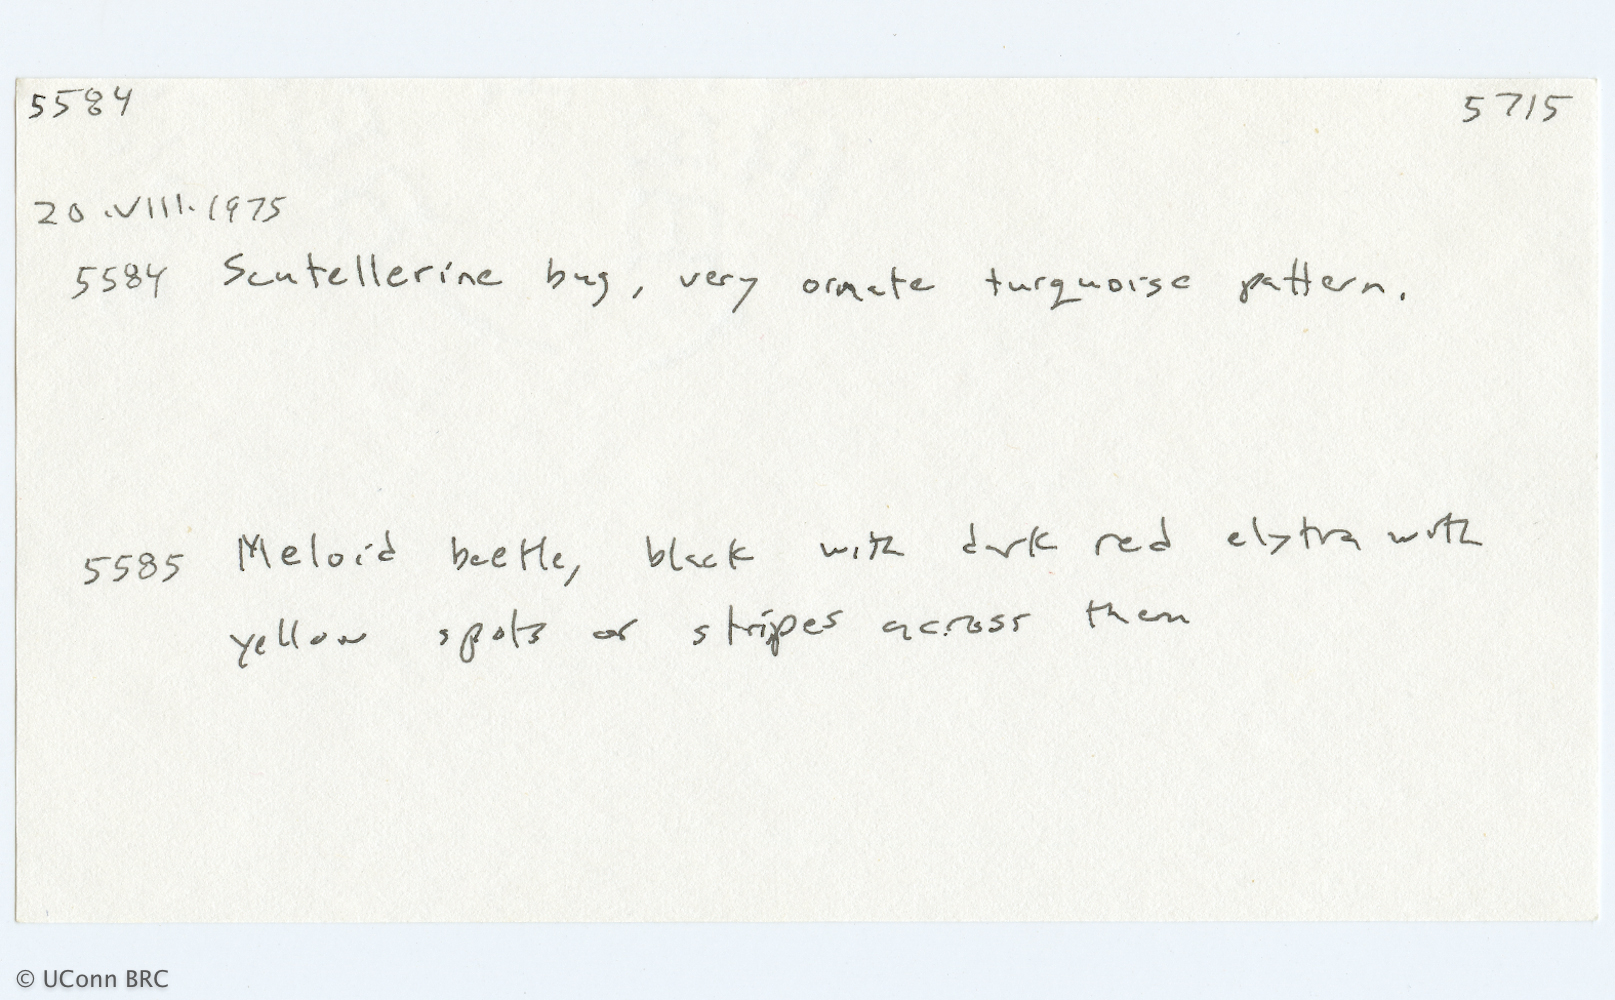 5584 5715
20.VIII.1975
5584 Scutellerine bug, very ornate turquoise pattern.
5585 Meloid beetle, black with dark red elytra with
yellow spots or stripes across them
© UConn BRC